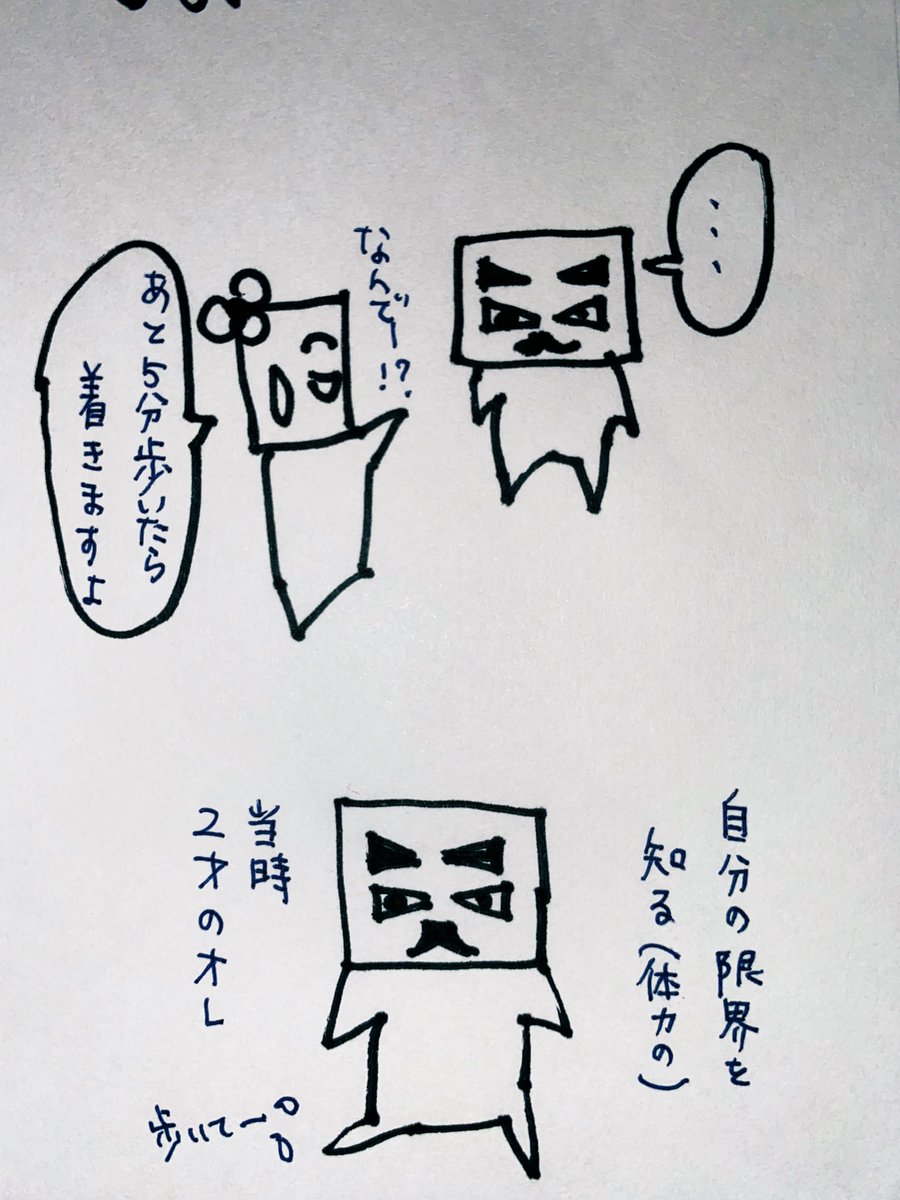 ・・・
なんでー!?
あと5分歩いたら
着きますよ
自分の限界を
知る(体力の)
当時
2才のオレ
歩いてー